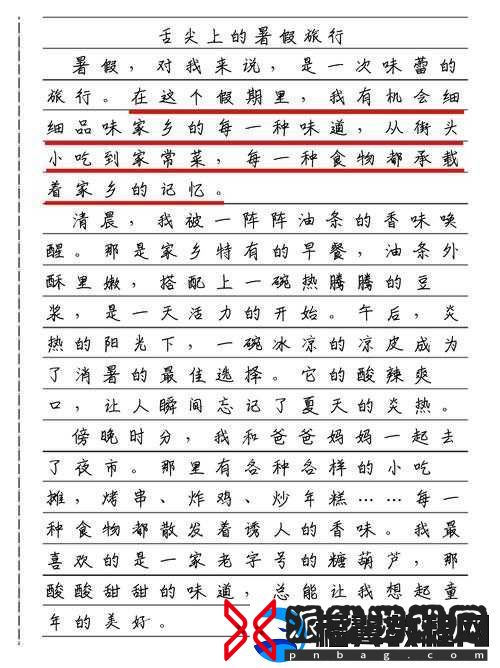 舌尖上的暑假旅行
暑假，对我来说，是一次味蕾的
旅行。在这个假期里，我有机会细
细品味家乡的每一种味道，从街头
小吃到家常菜，每一种食物都承载
着家乡的记忆。
清晨，我被一阵阵油条的香味唤
醒。那是家乡特有的早餐，油条外
酥里嫩，搭配上一碗热腾腾的豆
浆，是一天活力的开始。午后，炎
热的阳光下，一碗冰凉的凉皮成为
了消暑的最佳选择。它的酸辣爽
口，让人瞬间忘记了夏天的炎热。
傍晚时分，我和爸爸妈妈一起去
了夜市。那里有各种各样的小吃
摊，烤串、炸鸡、炒年糕……每一
种食物都散发着诱人的香味。我最
喜欢的是一家老字号的糖葫芦，那
酸酸甜甜的味道，总能让我想起童
年的美好。
pnbag.com